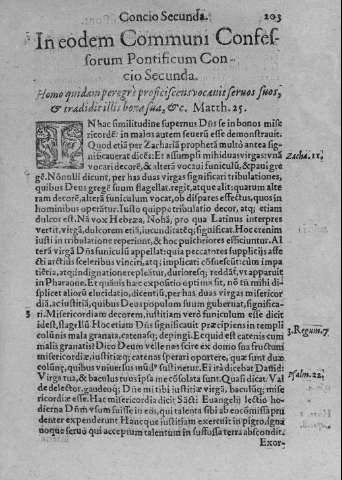 Concio Secunda. 203
In eodem Communi Confes-
sorum Pontificum Con-
cio Secunda.
Homo quidam peregrè proficiscens vocauit seruos suos,
& tradidit illis bona sua, &c. Matth. 25.
IN hac similitudine supernus Dñs se in bonos mise
ricordē: in malos autem seuerū esse demonstrauit.
Quod etiā per Zachariā prophetā multò antea sig-
nificauerat dicēs: Et assumpsi mihi duas virgas: vnā Zacha. 11.
vocaui decorē, & alterā vocaui funiculū, & paui gre
gē. Nōnulli dicunt, per has duas virgas significari tribulationes,
quibus Deus gregē suum flagellat, regit, atque alit: quarum alte
ram decorē, alterā funiculum vocat, ob dispares effectus, quos in
hominibus operātur. Iusto quippe tribulatio decor, atq; etiam
dulcor est. Nā vox Hebræa, Nohā, pro qua Latinus interpres
vertit, virgā, dulcorem etiā, iucunditatēq; significat. Hoc etenim
iusti in tribulatione reperiunt, & hoc pulchriores efficiuntur. Al
terā virgā Dñs funiculū appellat: quia peccantes supplicijs affe
cti arctiùs sceleribus vinciri, atq; implicari cōsuescūt: dum impa
tiētia, atq; indignatione repleātur, durioresq; reddāt, vt apparuit
in Pharaone. Et quāuis hæc expositio optima sit, nō tñ mihi di-
splicet aliorū elucidatio, dicentiū, per has duas virgas misericor
diā, ac iustitiā, quibus Deus populum suum gubernat, significa-
ri. Misericordiam decorem, iustitiam verò funiculum esse dicit
idest, flagellū Hoc etiam Dñs significauit præcipiens in templi
colūnis mala granata, catenasq; depingi. Ecquid est catenis cum 3. Regum. 7
malis granatis? Deo Deum velle nos scire ex domo sua fructum
misericordiæ, iustitiæq; catenas sperari oportere, quæ sunt duæ
colūnę, quibus vniuersus mūdᵒ sustinetur. Et ita dicebat Dauid:
Virga tua, & baculus tuus ipsa me cōsolata sunt. Quasi dicat. Val Psalm. 22.
de delector, gaudeoq; Dñe mi tibi iustitiæ virgā, baculūq; mise
ricordiæ esse. Hac misericordia dicit Sācti Euangelij lectio ho-
dierna Dñm vsum fuisse in eos, qui talenta sibi ab eo cōmissa pru
denter expenderunt Hanc que iustitiam exercuit in pigro, igna
noque seruo qui acceptum talentum in suffossa terra abscondit.
Exor-